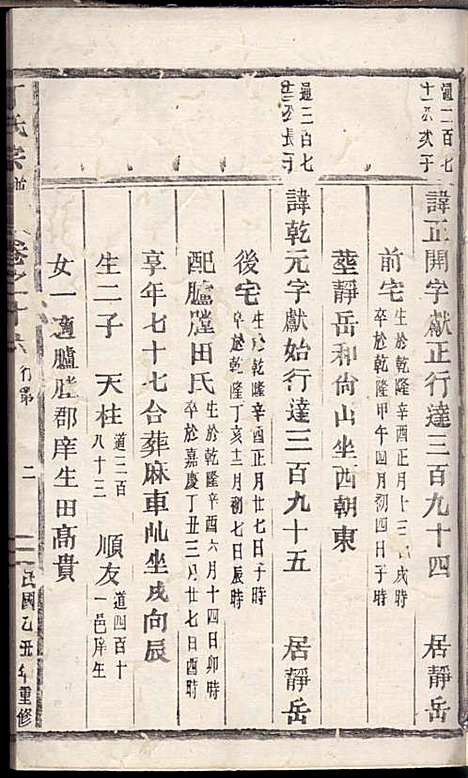 達三百七十二公次子
諱正開字獻正行達三百九十四 居靜岳
前宅 生於乾隆辛酉正月十三日戌時 卒於乾隆甲午四月初四日子時
塟靜岳和尙山坐西朝東
達三百七 公長子
諱乾元字獻始行達三百九十五 居靜岳
後宅 生於乾隆辛酉正月廿七日子時 卒於乾隆丁亥十二月初七日辰時
配臚膛田氏 生於乾隆辛酉六月十四日卯時 卒於嘉慶丁丑三月廿七日酉時
享年七十七合葬麻車乢坐戌向辰
生二子 天柱 道三百八十三 順友 道四百十一邑庠生
女一適臚膛郡庠生田高貴
丁氏宗譜 卷之十六 行第 二 民國乙丑年重修